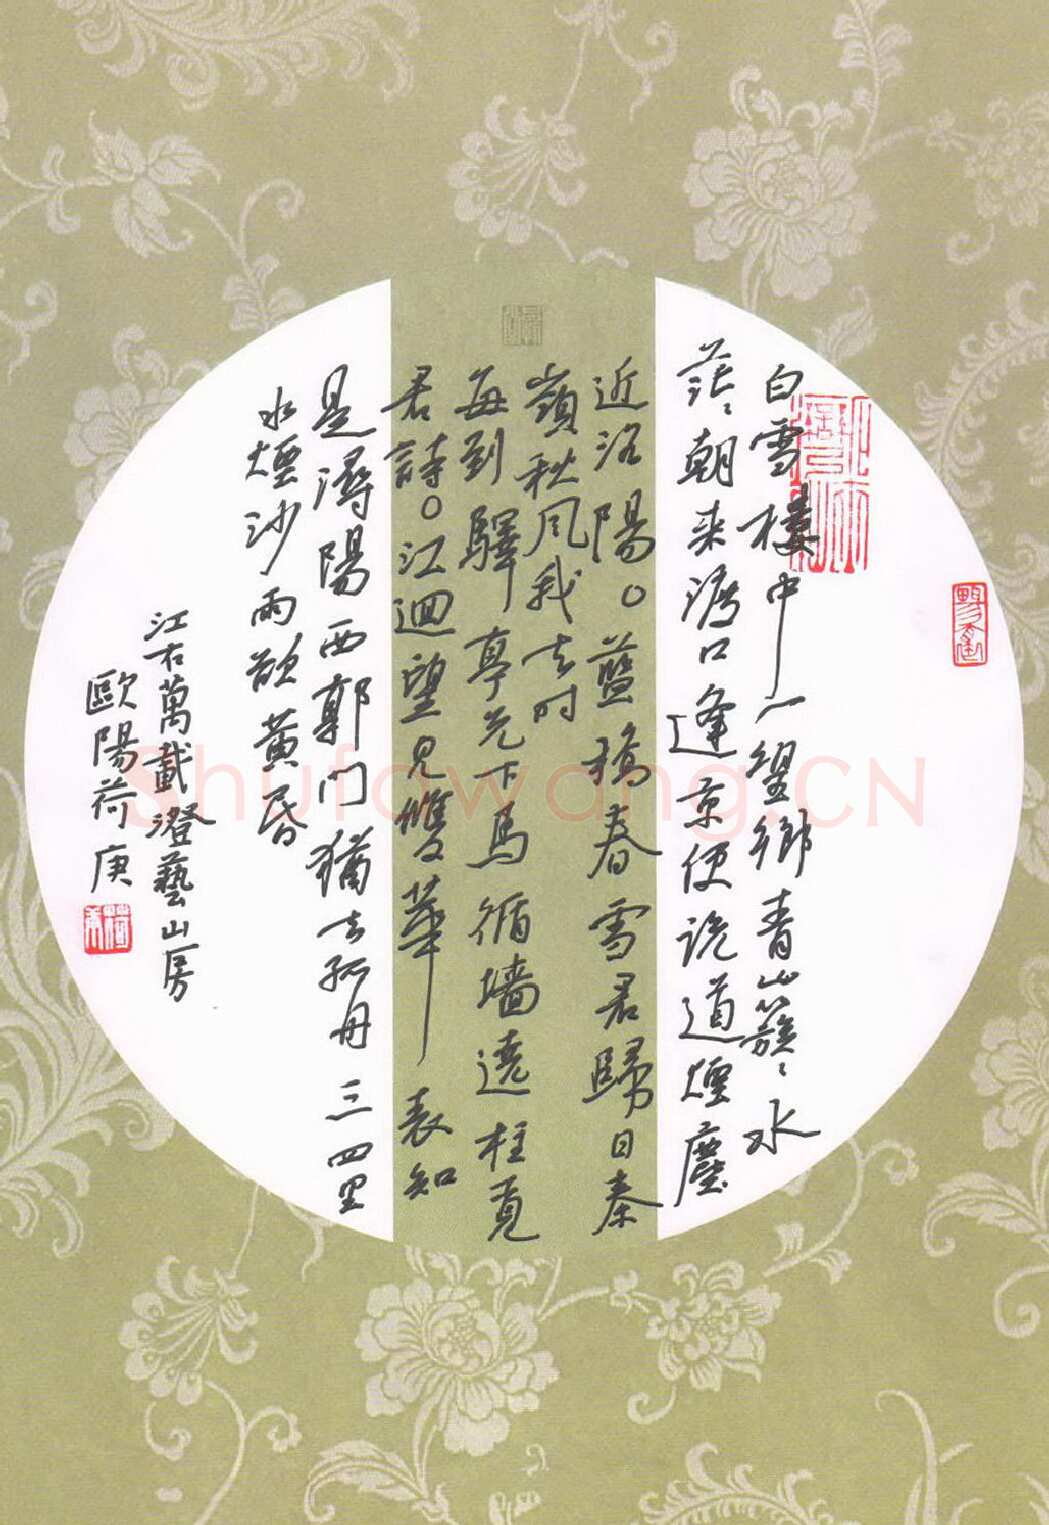 白雪楼中一望鄉青山簇〻水
茫〻朝来渡口逢京使説道煙塵
近洛陽。藍橋春雪君歸日秦
嶺秋風我去时
每到驛亭先下馬循墙遶柱覓
君詩。江迴望見雙華表知
是潯陽西郭門猶去孤舟三四里
水煙沙雨欲黄昏
江右萬載澄藝山房
歐陽荷庚
Shufawang.CN